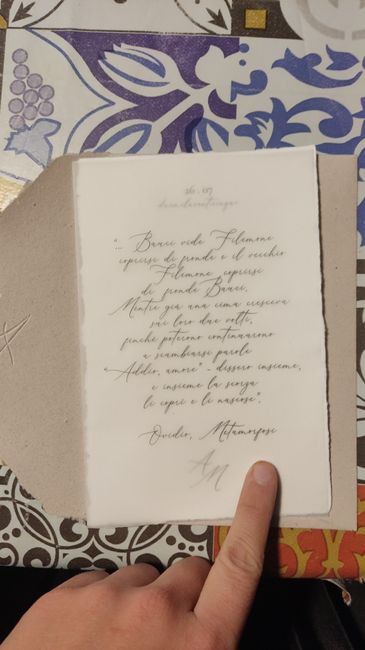 duemilaventicinque
"... Bauci vide Filemone
coprirsi di fronde e il vecchio
Filemone coprirsi
di fronde Bauci.
Mentre già una cima cresceva
sui loro due volti,
finché poterono continuarono
a scambiarsi parole
"Addio, amore" - dissero insieme,
e insieme la scorza
li coprì e li nascose".
Ovidio, Metamorfosi
AN